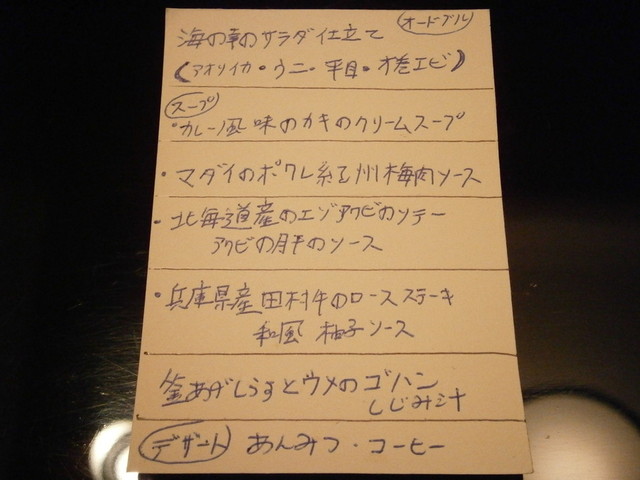 オードブル
海の幸のサラダ仕立て
(アオリイカ・ウニ・平目・才巻エビ)
スープ
・カレー風味のカキのクリームスープ
・マダイのポワレ紀州梅肉ソース
・北海道産のエゾアワビのソテー
アワビの肝のソース
・兵庫県産田村牛のロースステーキ
和風 柚子ソース
釜あがしらすとウメのゴハン
しじみ汁
デザート あんみつ・コーヒー